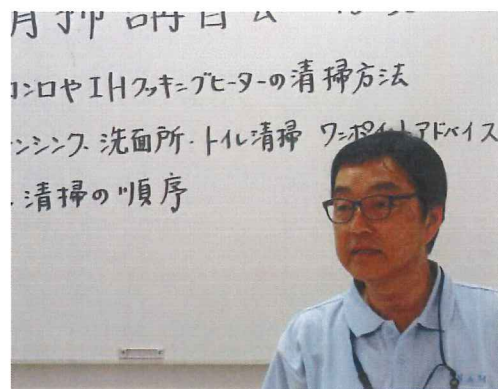 清掃講習会
コンロやIHクッキングヒーターの清掃方法
ンシンク、洗面所・トイレ清掃 ワンポイントアドバイス
清掃の順序